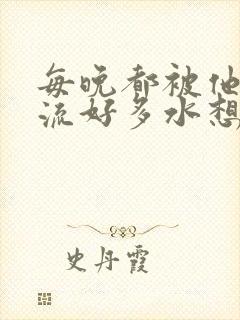 每晚都被他
流好多水想
史丹霞